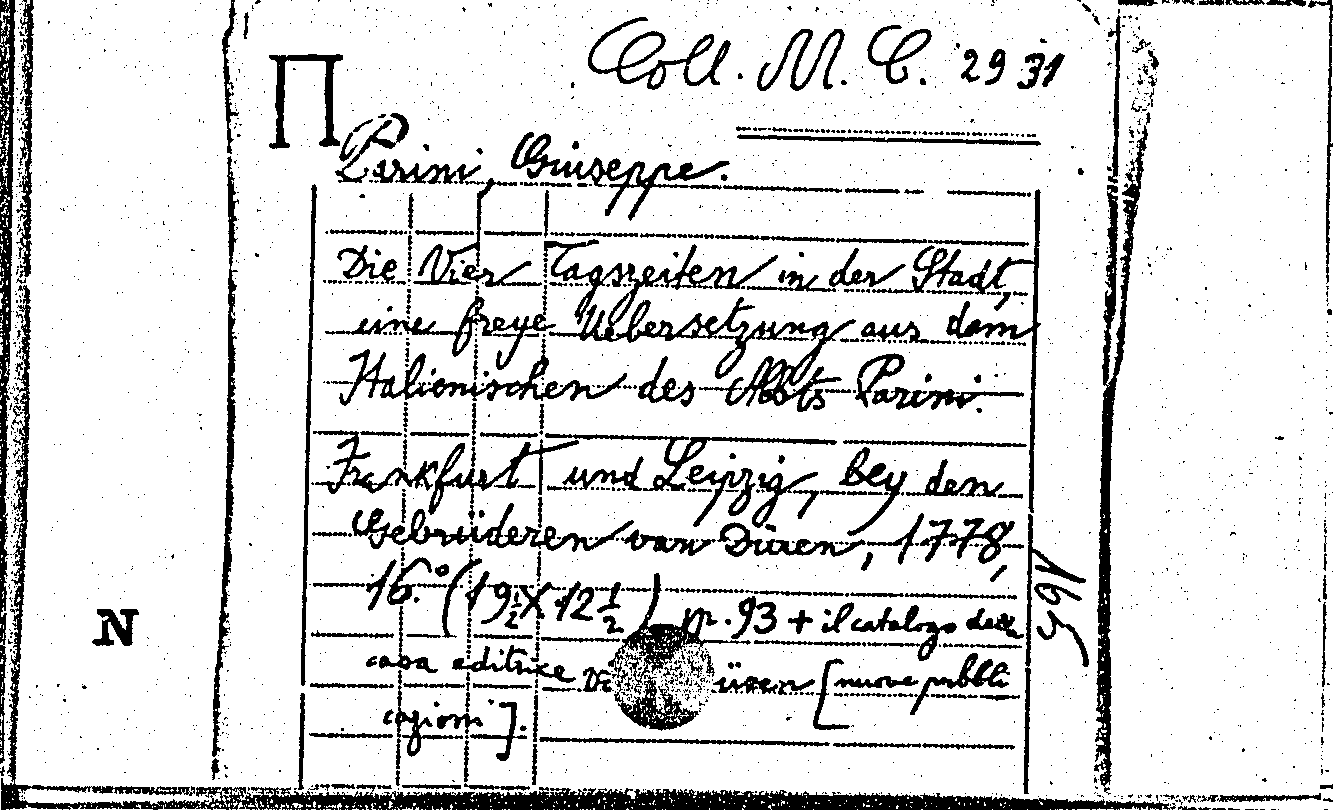 Coll. M. C. 29 31
Π
Parini, Giuseppe.
Die Vier Tagszeiten in der Stadt,
eine freye Uebersetzung aus dem
Italienischen des Abts Parini.
Frankfurt und Leipzig, bey den
Gebruideren van Düren, 1778,
16.° (19 1/2 X 12 1/2) pp. 93 + il catalogo della
casa editrice üren [nuove pubbli
cazioni].
N